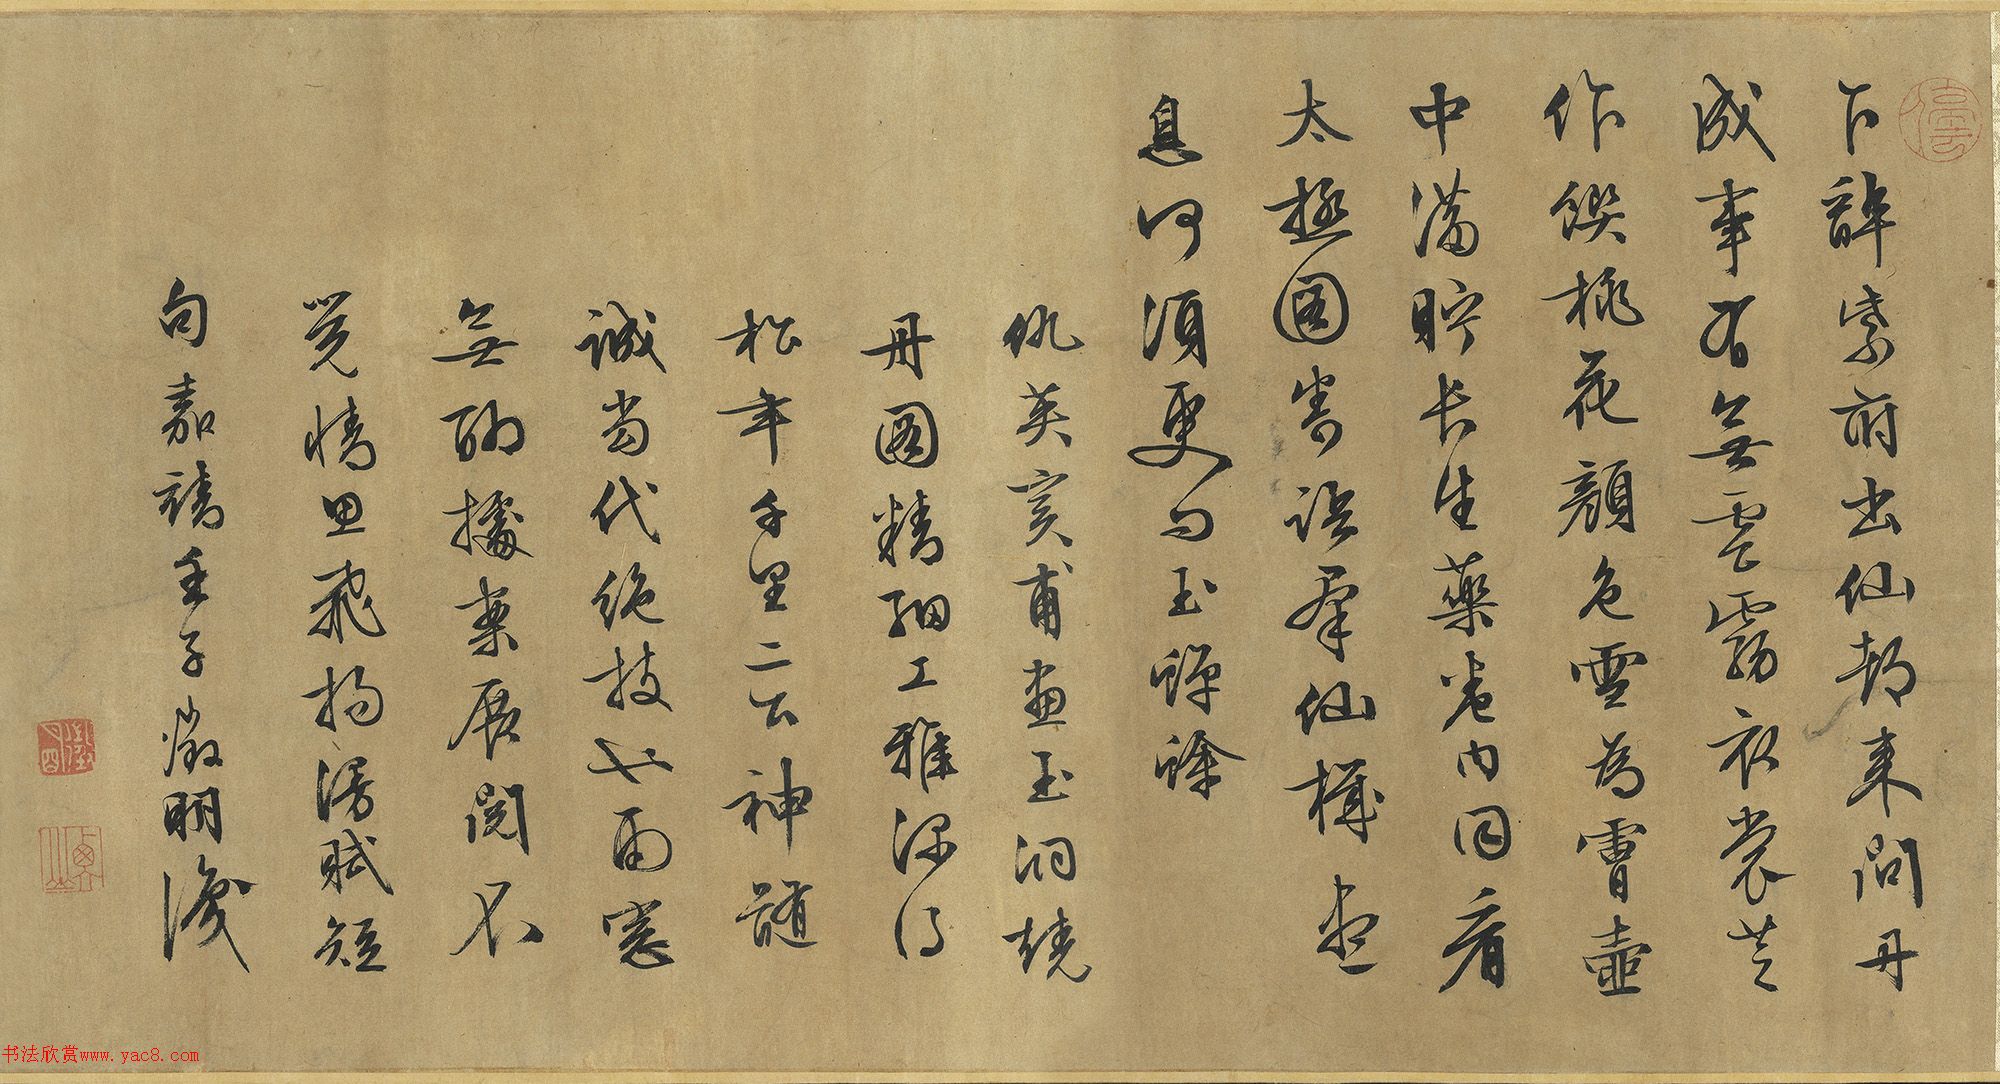 乍辭紫府出仙都來問丹
成事有無雲霧衣裳芝
作饌桃花顏色雪為膚壺
中滿貯長生藥卷內同看
太極圖寄語群仙機盡
息何須更問玉蟾蜍
仇英實甫畫玉洞燒
丹圖精細工雅深得
松年千里二公神髓
誠當代絕技也雨窓
無聊據案展閱不
覺情思飛揚漫賦短
句嘉靖壬子徵明識
停雲
衡山
书法欣赏www.yac8.com